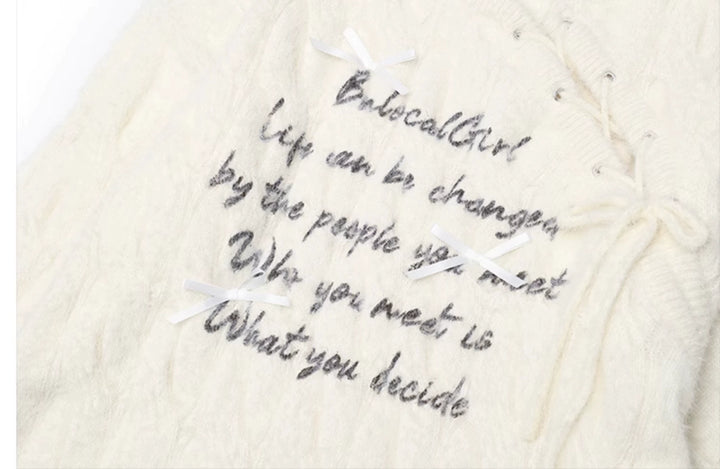 BalocalGirl
Life can be changed
by the people you meet
Who you meet is
What you decide